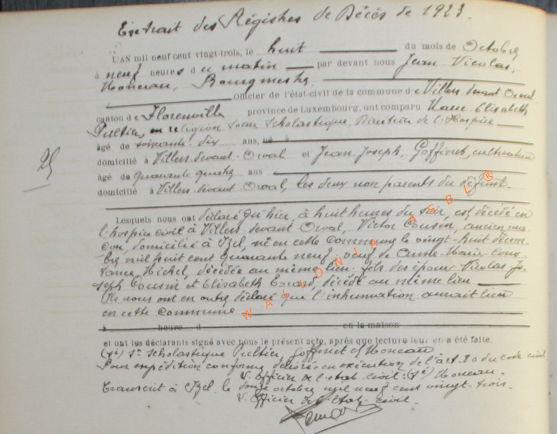 Extrait des Régistres de Décès de 1923
L'AN mil neuf cent vingt-trois, le huit du mois de Octobre
à neuf heures du matin par devant nous Jean Nicolas,
Monceau, Bourgmestre
Officier de l'état-civil de la commune de Villers devant Orval
canton de Florenville province de Luxembourg, ont comparu Marie Elisabeth
en religion Soeur Scholastique, Directrice de l'Hospice
âgé de soixante six ans, né à
domicilié à Villers devant Orval et Jean Joseph, Goffinet, cultivateur
âgé de quarante ans
domicilié à Villers devant Orval, les deux non parents du défunt
25
Lesquels nous ont déclaré qu'hier, à huit heures du soir, est décédé en
l'hospice civil à Villers devant Orval, Victor Cousin, ancien ma-
çon, domicilié à Izel, né en cette commune le vingt-huit décem-
bre mil huit cent quarante neuf, veuf de Anne-Marie Cons-
tance, Michel, décédée au même lieu, fils des époux Nicolas Jo-
seph Cousin et Elisabeth Evrard, décédé au même lieu
Ils nous ont en outre déclaré que l'inhumation aurait lieu
en cette commune
à heure d en la maison
et ont les déclarants signé avec nous le présent acte, après que lecture leur en a été faite.
(Sé) Sr Scholastique Goffinet et Monceau
Pour expédition conforme délivrée en exécution de l'art. 80 du code civil
L'Officier de l'état civil: (Sé) Monceau.
Transcrit à Izel, le douze octobre mil neuf cent vingt-trois.
L'Officier de l'état-civil.
WALLONIA ASBL ©